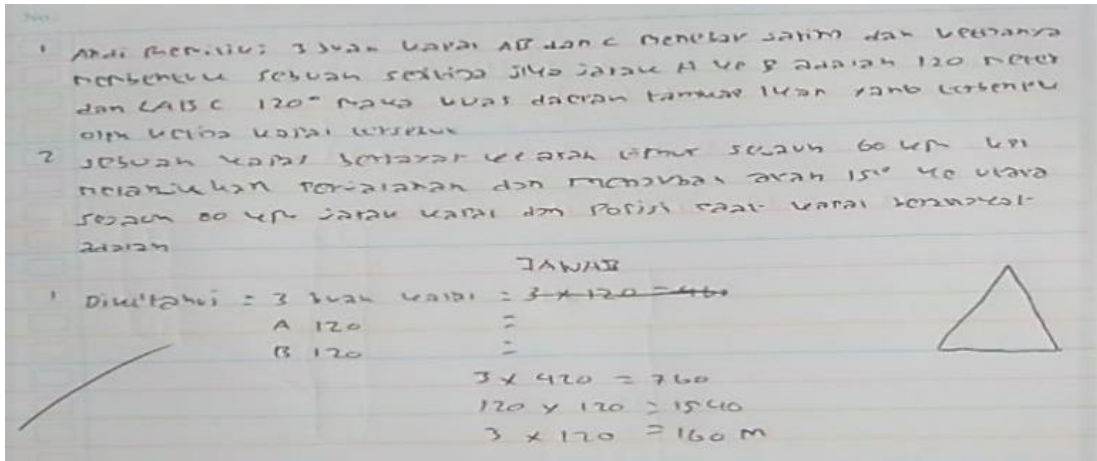 No.
1 Andi memiliki 3 buah kapal AB dan C menebar jaring dan ketiganya
membentuk sebuah segitiga jika jarak A ke B adalah 120 meter
dan LABC 120° maka luas daerah tangkap ikan yang terbentuk
oleh ketiga kapal tersebut
2 sebuah kapal berlayar ke arah timur sejauh 60 km kpl
melanjutkan perjalanan dan mengubah arah 150° ke utara
sejauh 80 km jarak kapal dan posisi saat kapal berangkat
adalah
JAWAB
1 Diketahui = 3 buah kapal = 3 x 120 = 460
A 120 =
B 120 =
3 x 420 = 760
120 x 120 = 1540
3 x 120 = 160 M